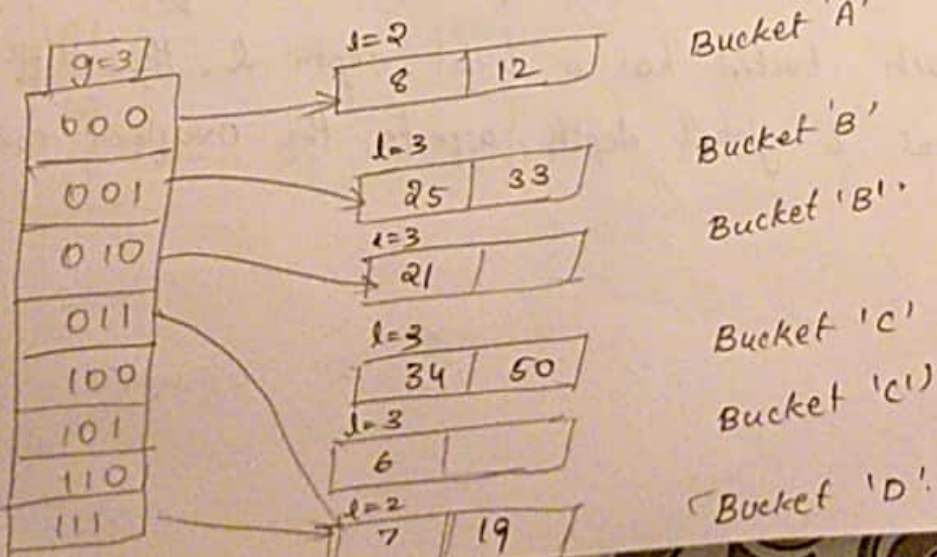 g=3
000
001
010
011
100
101
110
111
l=2
8 12 Bucket 'A'
l=3
25 33 Bucket 'B'
l=3
21 Bucket 'B''
l=3
34 50 Bucket 'C'
l=3
6 Bucket 'C')
l=2
7 19 Bucket 'D'